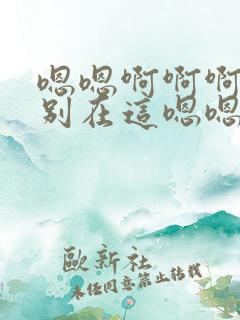 嗯嗯啊啊啊
别在這嗯嗯
歐新社
未经同意禁止转载